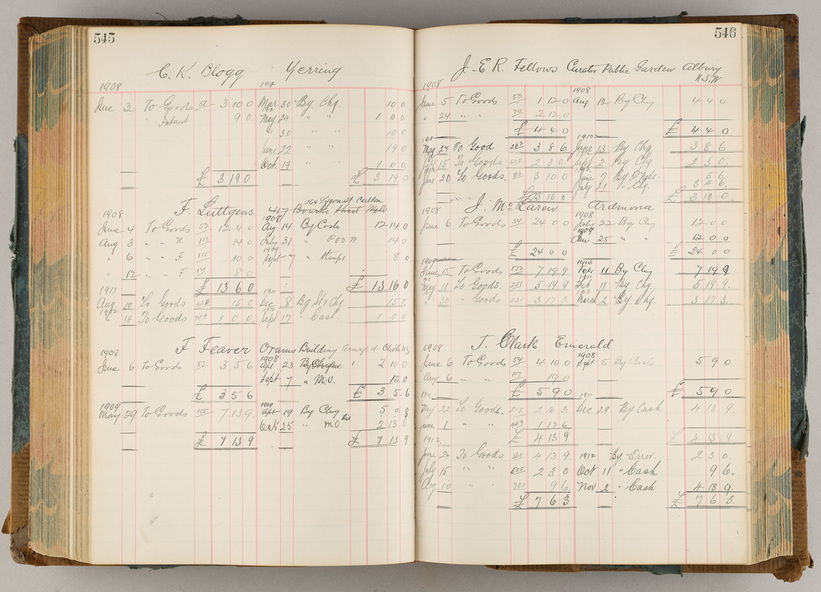 545
C. K. Blogg Yerring
1908
June 3 To Goods 3 10 0 Mar 30 By Chq 10 0
9 0 May 24 " " 1 0 0
" 30 " " 10 0
June 22 " " 19 0
Oct 19 " " 1 0 0
£ 3 19 0 £ 3 19 0
F. Luttgens
1908
June 4 To Goods 12 4 0 Aug 14 By Cash 12 14 0
Aug 3 " " 14 0 July 31 " P.O.O. 14 0
" 6 " " 10 0 Sept 7 " Stamps 8 0
" 12 " " 8 0
£ 13 6 0 £ 13 16 0
1911
Aug 18 To Goods 15 0 Dec 8 By Chq 15 0
" 18 To Goods 1 0 0 Sept 17 " Cash 1 0 0
F. Feaver Orams Building
1908
June 6 To Goods 3 5 6 Apr 23 By Cheque 2 10 0
Sept 7 " M.O.
£ 3 5 6 £ 3 5 6
1909
May 29 To Goods 7 13 9 Apr 19 By Chq
Oct 25 " M.O
£ 7 13 9 £ 7 13 9
546
J. E. R. Fellows Curator Public Garden Albury
N.S.W
1908
June 5 To Goods 1 12 0 Aug 12 By Chq 4 4 0
" 24 " " 2 12 0
£ 4 4 0 £ 4 4 0
May 27 To Good 3 8 6 June 13 By Chq 3 8 6
July 13 To Goods 2 3 0 Sept 2 By Chq 2 3 0
June 20 To Goods 3 10 0 June 7
July 21 " Chq 3 4 6
£ 3 10 0 £ 3 10 0
J. McLaren Ardmona
1908
June 6 To Goods 24 0 0 July 22 By Chq 12 0 0
Jan 25 " " 12 0 0
£ 24 0 0 £ 24 0 0
June 15 To Goods 7 19 9 Feb 11 By Chq 7 19 9
May 11 To Goods 5 19 9 Feb 11 By Chq 5 19 9
" 30 " Goods 3 17 3 March 2 By Chq 3 17 3
T. Clark Emerald
1908
June 6 To Goods 4 10 0 Sept 5 By Cash 5 9 0
Aug 6 " " 19 0
£ 5 9 0 £ 5 9 0
1911
May 22 To Goods Dec 29 By Cash 4 13 9
June 1 " " 1 17 6
£ 4 13 9 £ 4 13 9
1912
June 20 To Goods 4 13 9 1912 By Over. 2 3 0
July 15 " " 2 3 0 Oct 11 " Cash 9 6
Aug 10 " " 9 6 Nov 2 " Cash 4 13 9
£ 7 6 3 £ 7 6 3